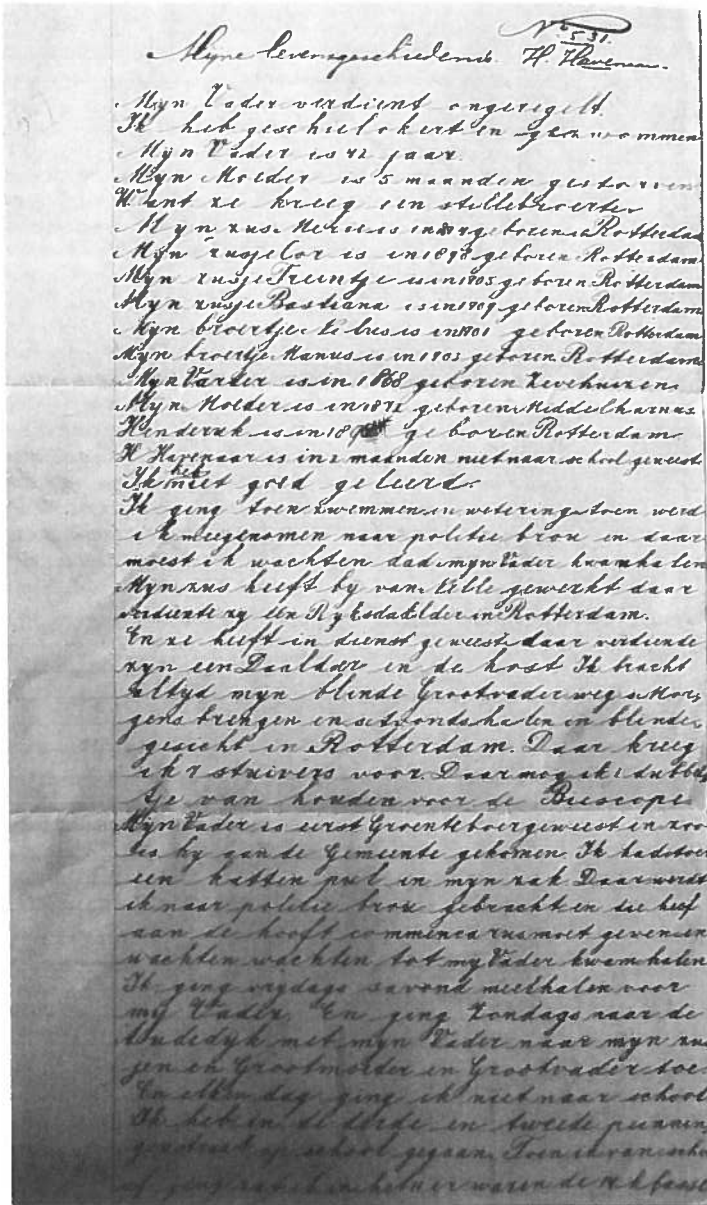 No 531.
Myne levensgeschiedenis. H. Havenaar.
Myn Vader verdient ongeregelt.
Ik heb geschielokert en gezwommen
Myn Vader is 42 jaar.
Myn Moeder is 5 maanden gestorven
Want ze kreeg een stillebroertje
Myn zus is in geboren Rotterdam
Myn zusje Cor is in 1898 geboren Rotterdam
Myn zusje Treintje is in 1905 geboren Rotterdam
Myn zusje Bastiana is in 1909 geboren Rotterdam
Myn broertje is in 1901 geboren Rotterdam
Myn broertje Manus is in 1903 geboren Rotterdam
Myn Varder is in 1868 geboren Zevehuizen
Myn Moeder is in 1872 geboren Middelharnus
Henderuk is in geboren Rotterdam
H Havenaar is in 2 maanden niet naar school geweest
Ik heb niet goed geleerd.
Ik ging toen zwemmen in wetering toen werd
ik meegenomen naar politie brou en daar
moest ik wachten dad myn Vader kwam halen
Myn zus heeft by van Nelle gewerkt daar
verdiente zy een Ryksdaelder in Rotterdam.
En ze heeft in dienst geweest daar verdiende
zyn een Daalder en de kost Ik bracht
altyd myn blinde Grootvader weg s Mor,
gens brengen en s Avonds halen in blinde
gesticht in Rotterdam. Daar kreeg
ik 7 stuivers voor. Daar mog ik 1 dubbel
tje van houden voor de Biescope
Myn Vader is eerst Groenteboer geweest en zoo
is hy aan de Gemeente gekomen. Ik had toen
een katten pul in myn zak Daar werdt
ik naar politie brou gebracht en die heef
aan de hooft commencarus moet geven en
wachten wachten tot my Vader kwam halen
Ik ging vrydags savond meelhalen voor
my Vader. En ging Zondags naar de
dyk met myn Vader naar myn zus
jen en Grootmoeder en Grootvader toe.
En elken dag ging ik niet naar school
Ik heb in de derde en tweede
op school gegaan. Toen ik van scho
af ging zat ik in er waren de